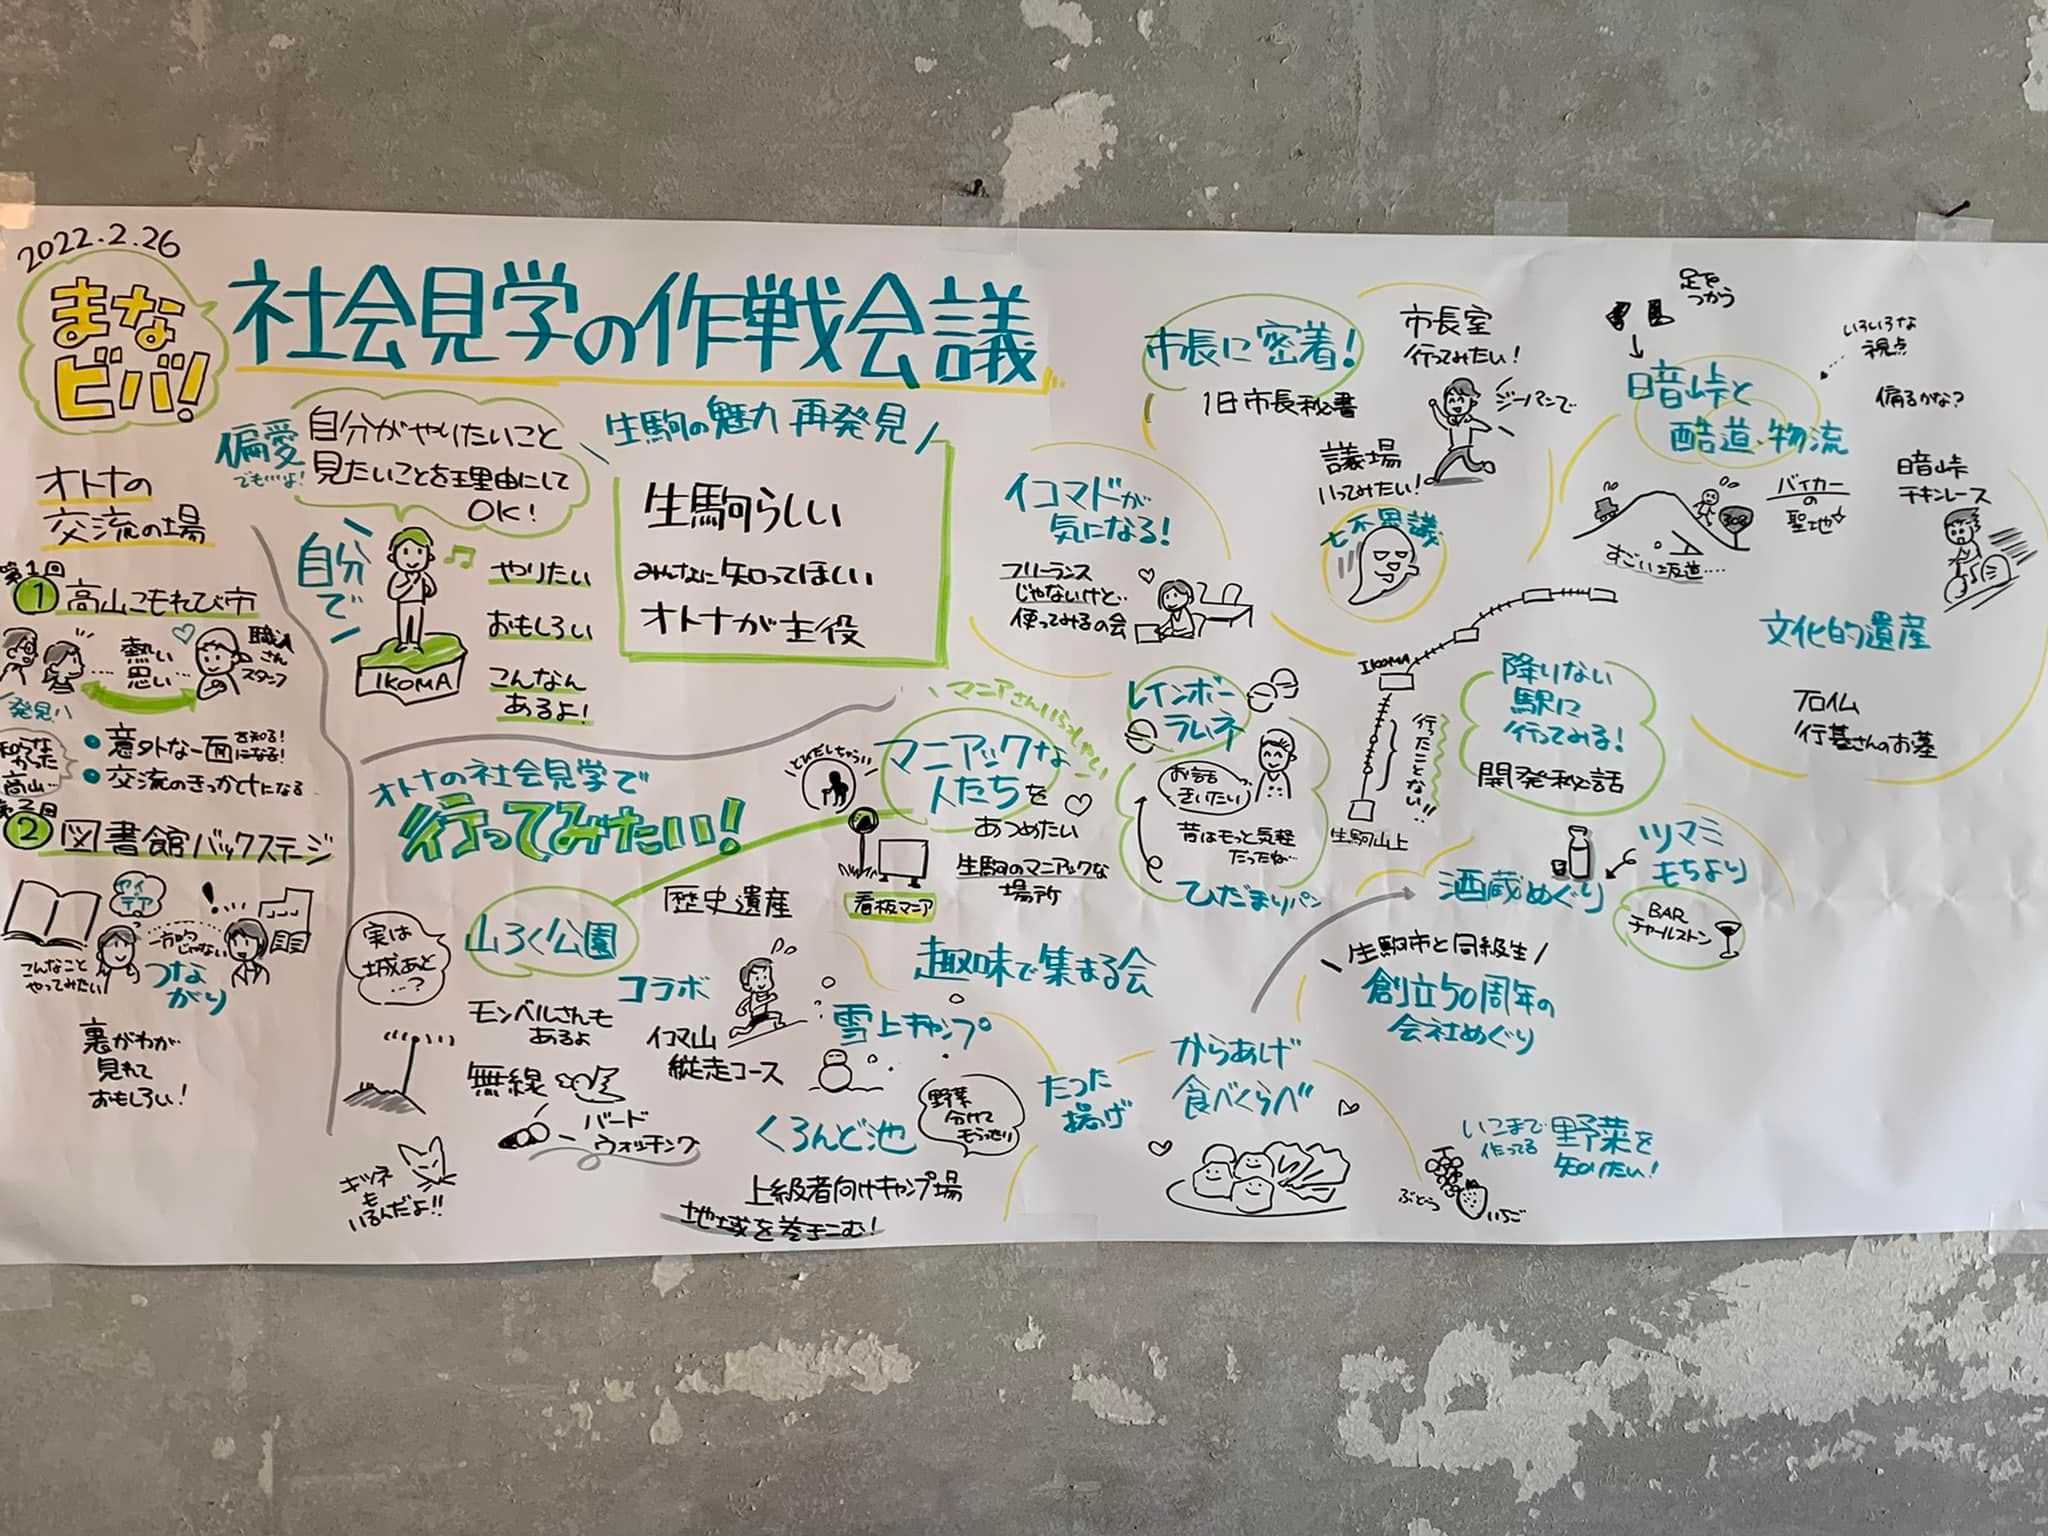 2022.2.26
まな
ビバ!
社会見学の作戦会議
オトナの
交流の場
第1回
1 高山こもれび市
熱い
思い
職人さん
スタッフ
発見!!
知らな
かった
高山…
意外な一面を知る!
になる!
交流のきっかけになる
2 図書館バックステージ
アイ
デア
一方的
じゃない
こんなこと
やってみたい
つな
がり
裏がわが
見れて
おもしろい!
偏愛
でも…よ!
自分がやりたいこと
見たいことを理由にして
OK!
自分で
やりたい
おもしろい
こんなん
あるよ!
IKOMA
生駒の魅力 再発見
生駒らしい
みんなに知ってほしい
オトナが主役
オトナの社会見学で
行ってみたい!
マニアさんいらっしゃい
マニアックな
人たちを
あつめたい
生駒のマニアックな
場所
とびだしちゃう!
看板マニア
歴史遺産
山ろく公園
実は
城あと
…?
モンベルさんも
あるよ
無線
バード
ウォッチング
キツネ
も
いるんだよ!!
コラボ
イコマ山
縦走コース
趣味で集まる会
雪上キャンプ
くろんど池
野菜
分けて
もらったり
上級者向けキャンプ場
地域を巻きこむ!
市長に密着!
1日市長秘書
市長室
行ってみたい!
ジーパンで
議場
いってみたい!
七不思議
イコマドが
気になる!
フリーランス
じゃないけど…
使ってみるの会
レインボー
ラムネ
お話
ききたい
昔はもっと気軽
だったね…
ひだまりパン
IKOMA
行ったことない!!
生駒山上
降りない
駅に
行ってみる!
開発秘話
足を
つかう
いろいろな
視点
暗峠と
酷道・物流
偏るかな?
308
すごい坂道….
バイカー
の
聖地
暗峠
チキンレース
文化的遺産
行基さんのお墓
酒蔵めぐり
ツマミ
もちより
BAR
チャールストン
生駒市と同級生
創立50周年の
会社めぐり
たつた
揚げ
からあげ
食べくらべ
いこまで
作ってる
野菜を
知りたい!
ぶどう
いちご